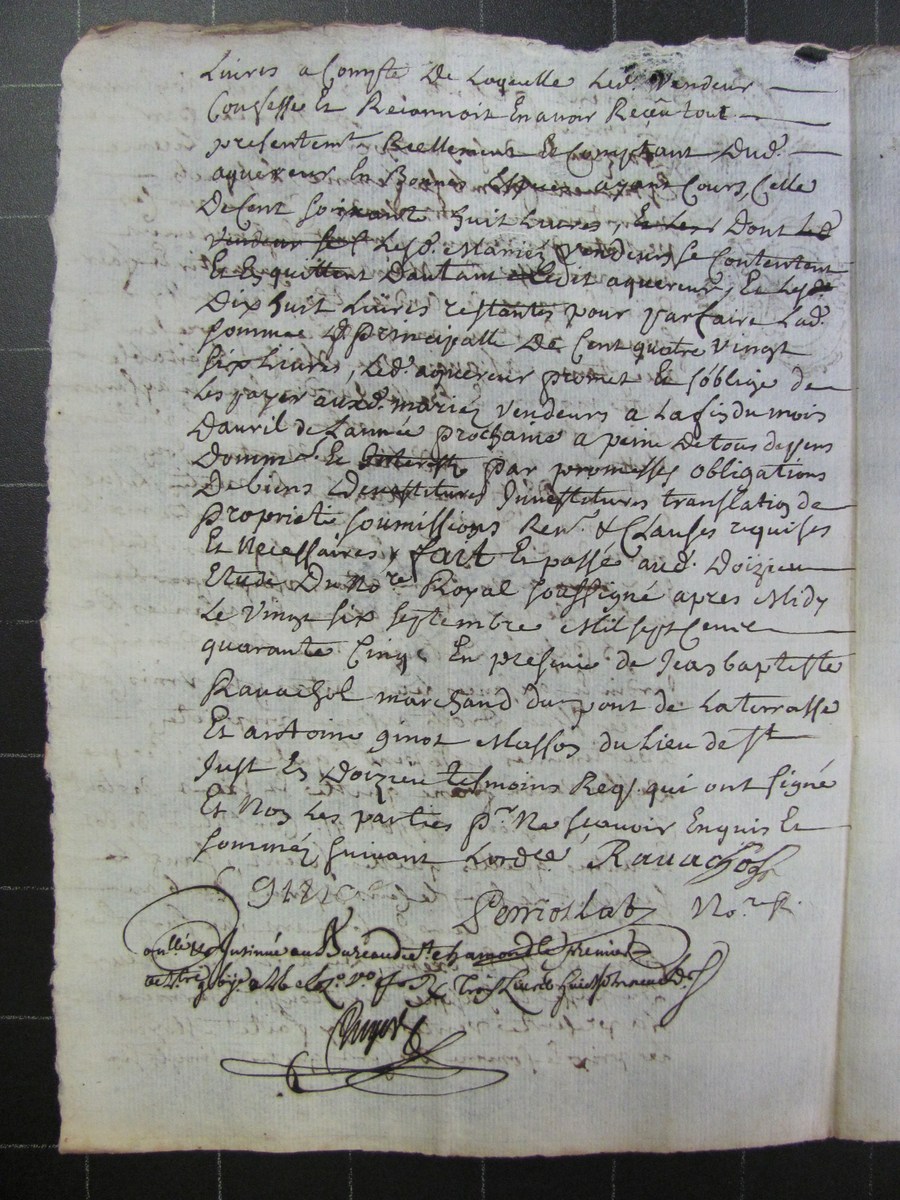 Livres a Compte De Laquelle Led. Vendeur
Confesse Et Reconnoit En avoir Reçeu tout
presentemt. Reellement Et Comptant Dud.
aquereur En Bonnes Especes ayant Cours, Celle
De Cent soixante huit Livres, Dont
Lesd. Mariéz Vendeurs se Contentent
Et En quittent Dautant Ledit aquereur, Et Les
Dix huit Livres restantes pour parfaire Lad.
somme principalle De Cent quatre vingt
six Livres, Led. aquereur promet Et soblige de
Les payer auxd. mariéz vendeurs a La fin du mois
Dauril de Lannée prochaine a peine De tous despens
Domm. Et Interests par promesses obligations
De biens Investitures translation de
proprieté soumissions Ren.on & Clauses requises
Et Necessaires, fait Et passé aud. Doizieu
Etude Du No.re Royal soussigné apres Midy
Le Vingt six septembre Mil sept Cent
quarante Cinq En presence de Jean baptiste
Ravachol marchand du pont de La terrasse
Et antoine ginot Masson du Lieu de st
Just En Doizieu tesmoins Req. qui ont signé
Et Non Les parties pr. Ne scavoir Enquis Et
sommés suivant Lordce. Ravachol
No.re R.
Insinué au Bureau de st chamond le premier